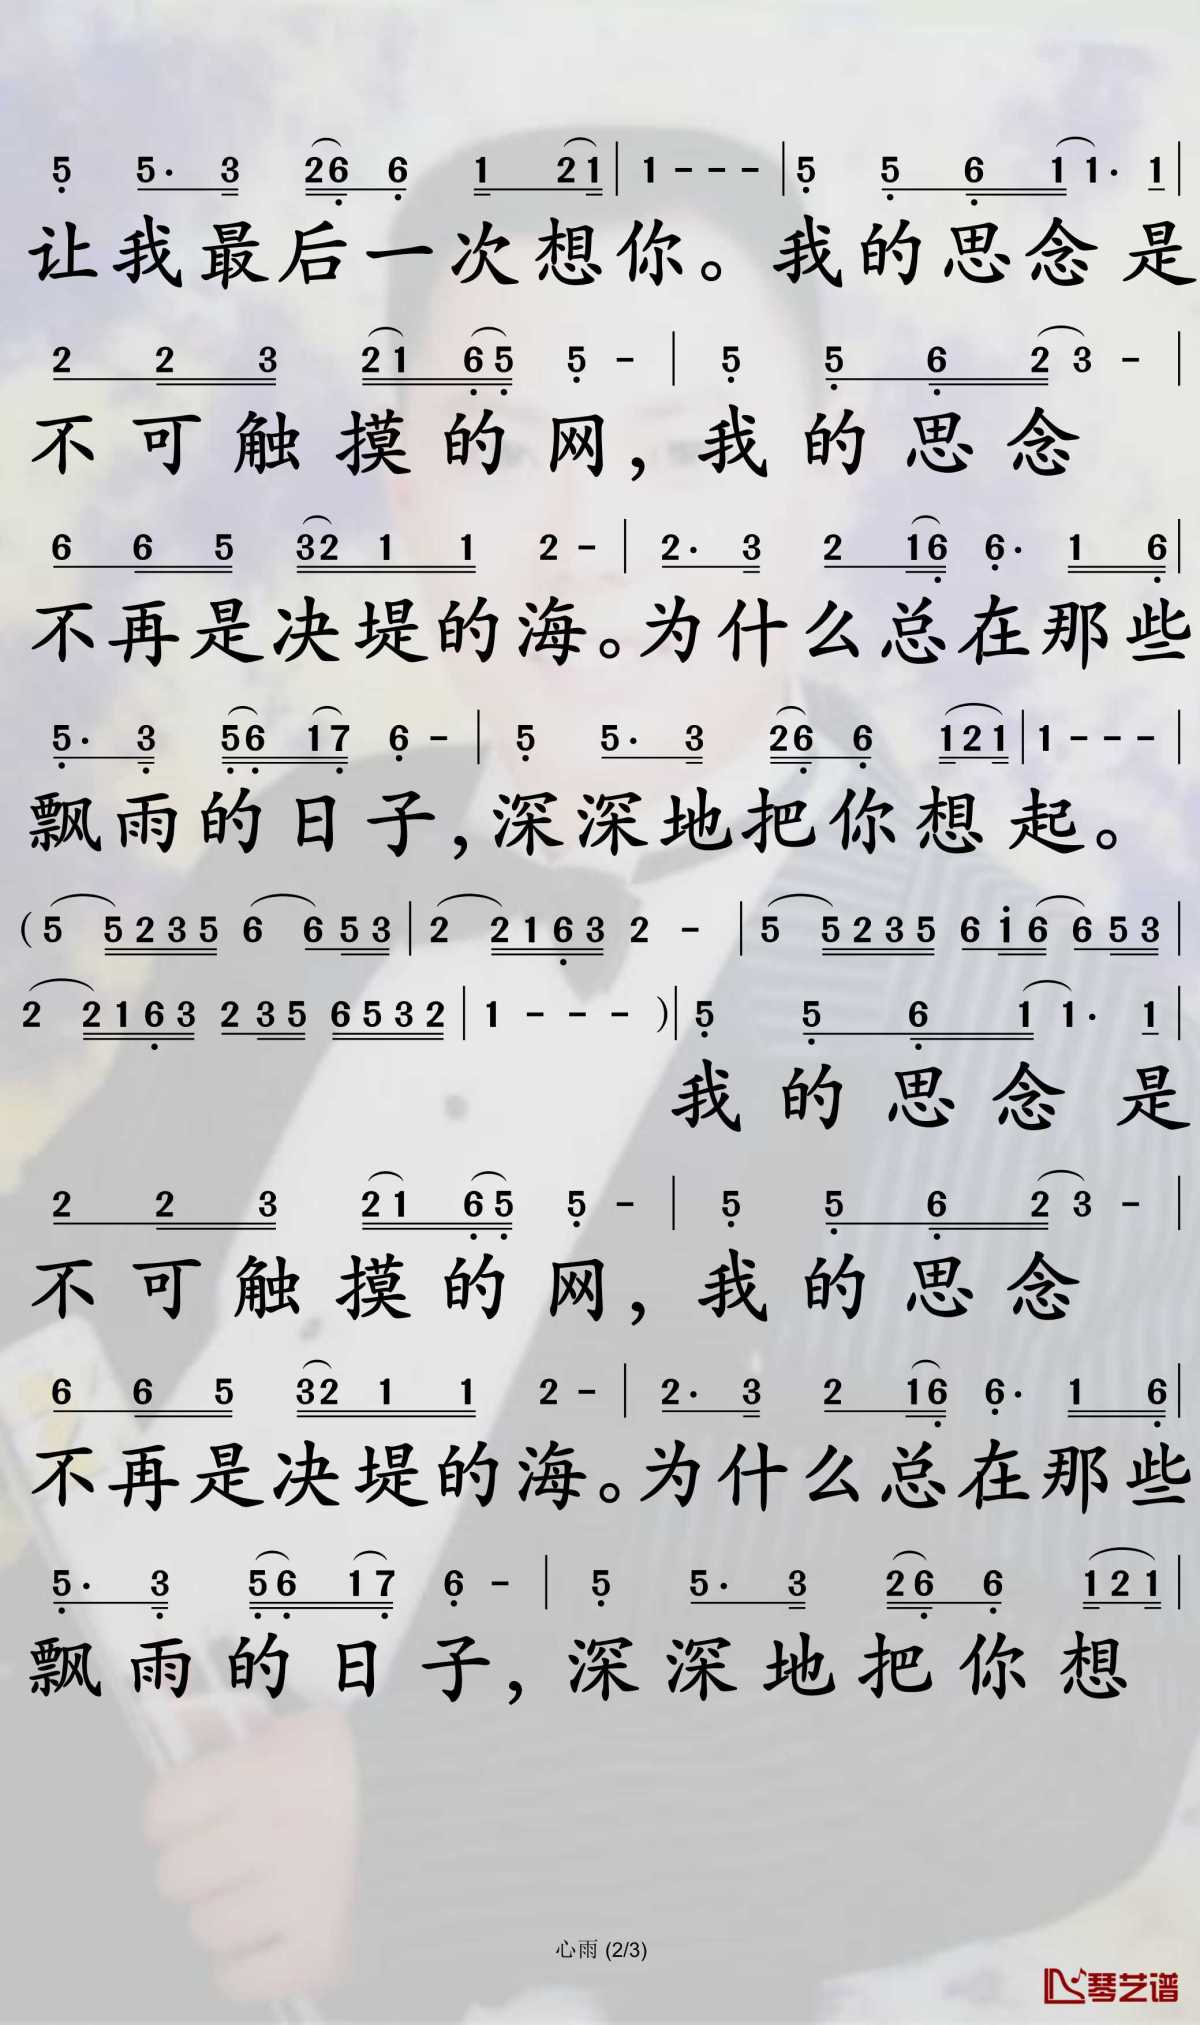 5 5· 3 26 6 1 21 | 1 - - - | 5 5 6 1 1· 1 |
让我最后一次想你。我的思念是
2 2 3 21 65 5 - | 5 5 6 2 3 - |
不可触摸的网,我的思念
6 6 5 32 1 1 2 - | 2· 3 2 16 6· 1 6 |
不再是决堤的海。为什么总在那些
5· 3 56 17 6 - | 5 5· 3 26 6 121 | 1 - - - |
飘雨的日子,深深地把你想起。
(5 5235 6 653 | 2 2163 2 - | 5 5235 6i6 653 |
2 2163 235 6532 | 1 - - - ) | 5 5 6 1 1· 1 |
我的思念是
2 2 3 21 65 5 - | 5 5 6 2 3 - |
不可触摸的网,我的思念
6 6 5 32 1 1 2 - | 2· 3 2 16 6· 1 6 |
不再是决堤的海。为什么总在那些
5· 3 56 17 6 - | 5 5· 3 26 6 121 |
飘雨的日子,深深地把你想
心雨 (2/3)
琴艺谱